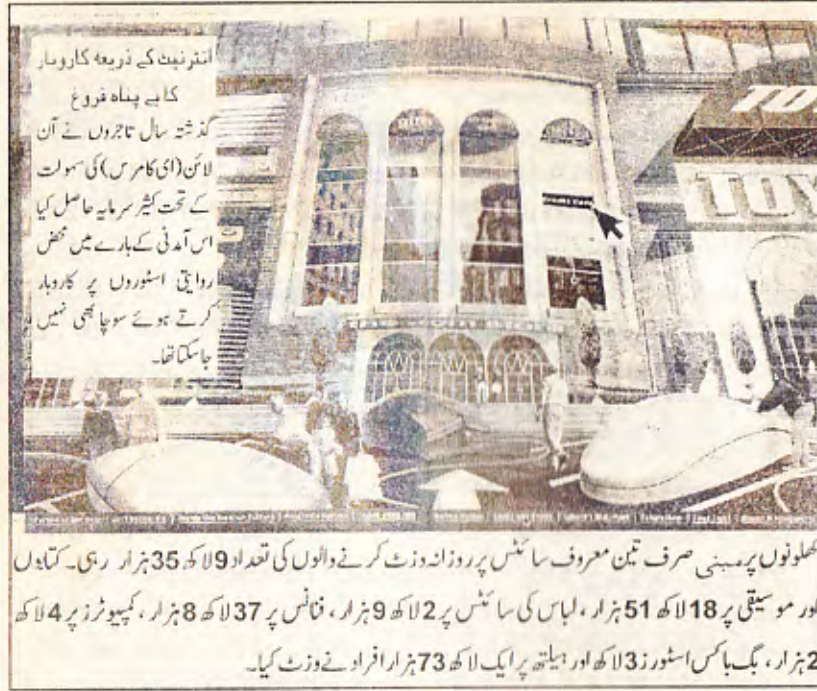 انٹرنیٹ کے ذریعہ کاروبار
کا بے پناہ فروغ
گذشتہ سال تاجروں نے آن
لائن (ای کامرس) کی سہولت
کے تحت کثیر سرمایہ حاصل کیا
اس آمدنی کے بارے میں محض
روایتی اسٹوروں پر کاروبار
کرتے ہوئے سوچا بھی نہیں
جاسکتا تھا۔
TOY
کھلونوں پر مبنی صرف تین معروف سائٹس پر روزانہ وزٹ کرنے والوں کی تعداد 9 لاکھ 35 ہزار رہی۔ کتابوں
اور موسیقی پر 18 لاکھ 51 ہزار، لباس کی سائٹس پر 2 لاکھ 9 ہزار، فنانس پر 37 لاکھ 8 ہزار، کمپیوٹرز پر 4 لاکھ
2 ہزار، بگ باکس اسٹورز 3 لاکھ اور ہیلتھ پر ایک لاکھ 73 ہزار افراد نے وزٹ کیا۔